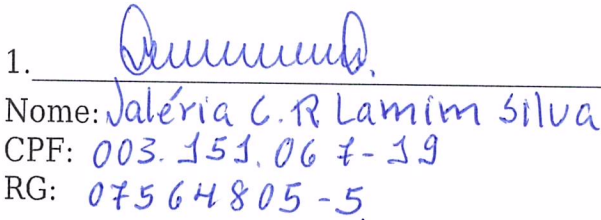 1.
Nome: Valéria C. R Lamim Silva
CPF: 003.151.067-19
RG: 07564805-5